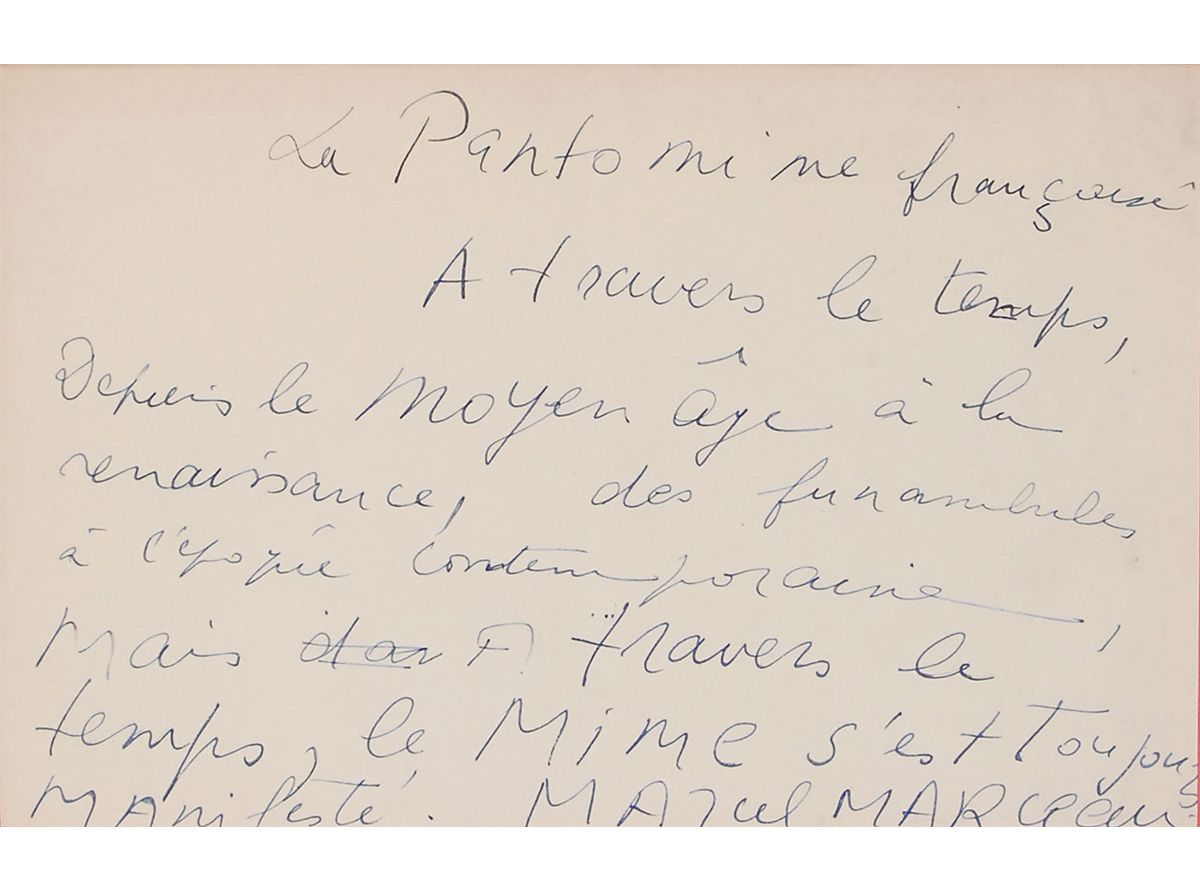 La Pantomime française
A travers le temps,
Depuis le Moyen âge à la
renaissance, des funambules
à l'épopée contemporaine,
Mais A travers le
temps, le Mime s'est toujours
Manifesté. MARCEAU